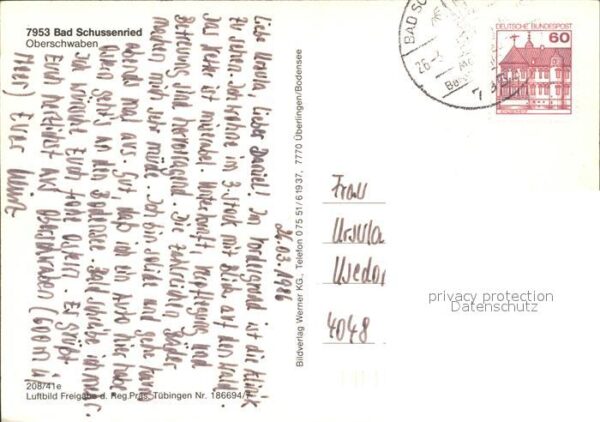 7953 Bad Schussenried
Oberschwaben
26.03.1986
Liebe Ursula, lieber Daniel! Im Vordergrund ist die Klinik
zu sehen. Ich wohne im 3. Stock mit Blick auf den Wald.
Das Wetter ist miserabel. Unterkunft, Verpflegung und
Betreuung sind hervorragend. Die zahlreichen Bäder
machen mich sehr müde. Ich bin solide und gehe kaum
abends mal aus. Gut, daß ich ein Auto hier habe.
geht's an den Bodensee. Bald schreibe ich mehr.
Ich wünsche Euch frohe Ostern. Es grüßt
Euch herzlichst aus Oberschwaben (600 m ü.
Meer) Euer
208/41e
Luftbild Freigabe d. Reg.Präs. Tübingen Nr. 186694/
Bildverlag Werner KG., Telefon 07551/61937, 7770 Überlingen/Bodensee
DEUTSCHE BUNDESPOST
60
BAD SC
26.-3.
7
Frau
Ursula
Usedo
4048
privacy protection
Datenschutz